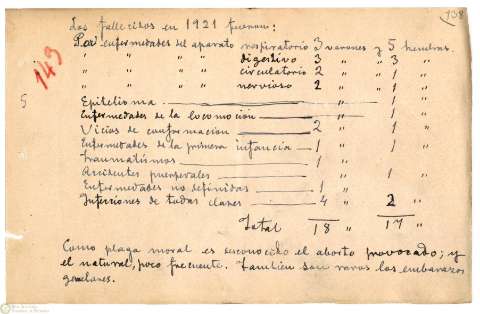 138
Los fallecidos en 1921 fueron:
Por enfermedades del aparato respiratorio 3 varones y 5 hembras.
149
" " " " digestivo 3 " " 3 "
" " " " circulatorio 2 " " 1 "
" " " " nervioso 2 " " 1 "
5
Epitelioma — " 1 "
Enfermedades de la locomoción — " 1 "
Vicios de conformación — 2 " 1 "
Enfermedades de la primera infancia — 1 " 1 "
Traumatismos — 1 "
Accidentes puerperales — " 1 "
Enfermedades no definidas — 1 "
Infecciones de todas clases — 4 " 2 "
Total 18 " 17 "
Como plaga moral es desconocido el aborto provocado; y
el natural, poco frecuente. También son raros los embarazos
gemelares.